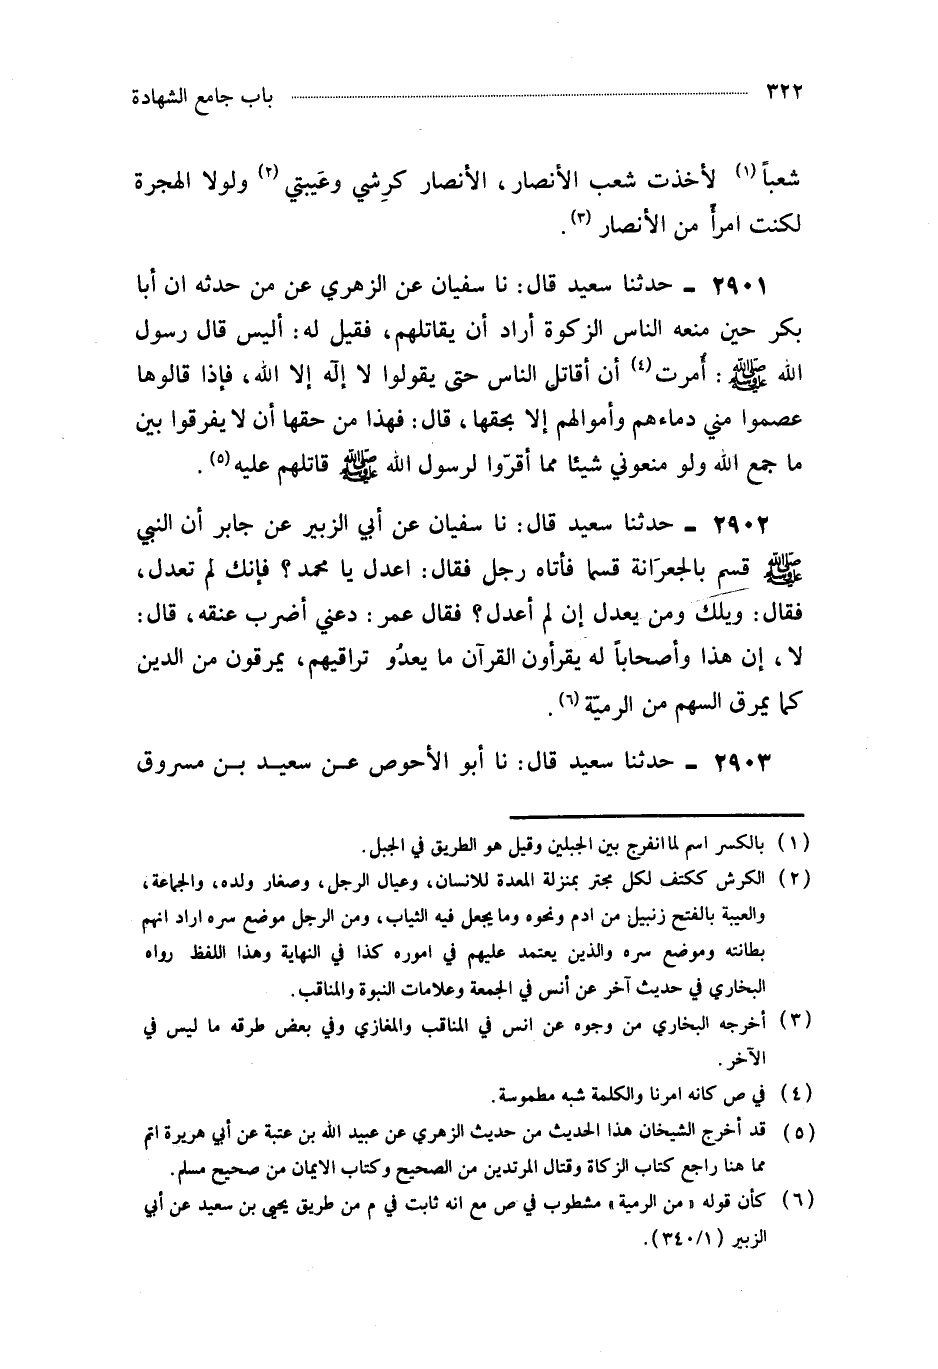 ٣٢٢ باب جامع الشهادة
شعباً (١) لأخذت شعب الأنصار، الأنصار كرِشي وعَيبتي (٢) ولولا الهجرة
لكنت امرأً من الأنصار (٣).
٢٩٠١ ـ حدثنا سعيد قال: نا سفيان عن الزهري عن من حدثه ان أبا
بكر حين منعه الناس الزكوة أراد أن يقاتلهم، فقيل له: أليس قال رسول
الله ﷺ: أُمرت (٤) أن أقاتل الناس حتى يقولوا لا إلٓه إلا الله، فإذا قالوها
عصموا مني دماءهم وأموالهم إلا بحقها، قال: فهذا من حقها أن لا يفرقوا بين
ما جمع الله ولو منعوني شيئا مما أقرّوا لرسول الله ﷺ قاتلهم عليه (٥).
٢٩٠٢ ـ حدثنا سعيد قال: نا سفيان عن أبي الزبير عن جابر أن النبي
ﷺ قسم بالجعرَانة قسما فأتاه رجل فقال: اعدل يا محمد؟ فإنك لم تعدل،
فقال: ويلك ومن يعدل إن لم أعدل؟ فقال عمر: دعني أضرب عنقه، قال:
لا، إن هذا وأصحاباً له يقرأون القرآن ما يعدُو تراقيهم، يمرقون من الدين
كما يمرق السهم من الرميّة (٦).
٢٩٠٣ ـ حدثنا سعيد قال: نا أبو الأحوص عن سعيد بن مسروق
(١) بالكسر اسم لما انفرج بين الجبلين وقيل هو الطريق في الجبل.
(٢) الكرش ككتف لكل مجتر بمنزلة المعدة للانسان، وعيال الرجل، وصغار ولده، والجماعة،
والعيبة بالفتح زنبيل من ادم ونحوه وما يجعل فيه الثياب، ومن الرجل موضع سره اراد انهم
بطانته وموضع سره والذين يعتمد عليهم في اموره كذا في النهاية وهذا اللفظ رواه
البخاري في حديث آخر عن أنس في الجمعة وعلامات النبوة والمناقب.
(٣) أخرجه البخاري من وجوه عن انس في المناقب والمغازي وفي بعض طرقه ما ليس في
الآخر.
(٤) في ص كانه امرنا والكلمة شبه مطموسة.
(٥) قد أخرج الشيخان هذا الحديث من حديث الزهري عن عبيد الله بن عتبة عن أبي هريرة اتم
مما هنا راجع كتاب الزكاة وقتال المرتدين من الصحيح وكتاب الايمان من صحيح مسلم.
(٦) كأن قوله «من الرمية» مشطوب في ص مع انه ثابت في م من طريق يحيى بن سعيد عن أبي
الزبير (٣٤٠/١).